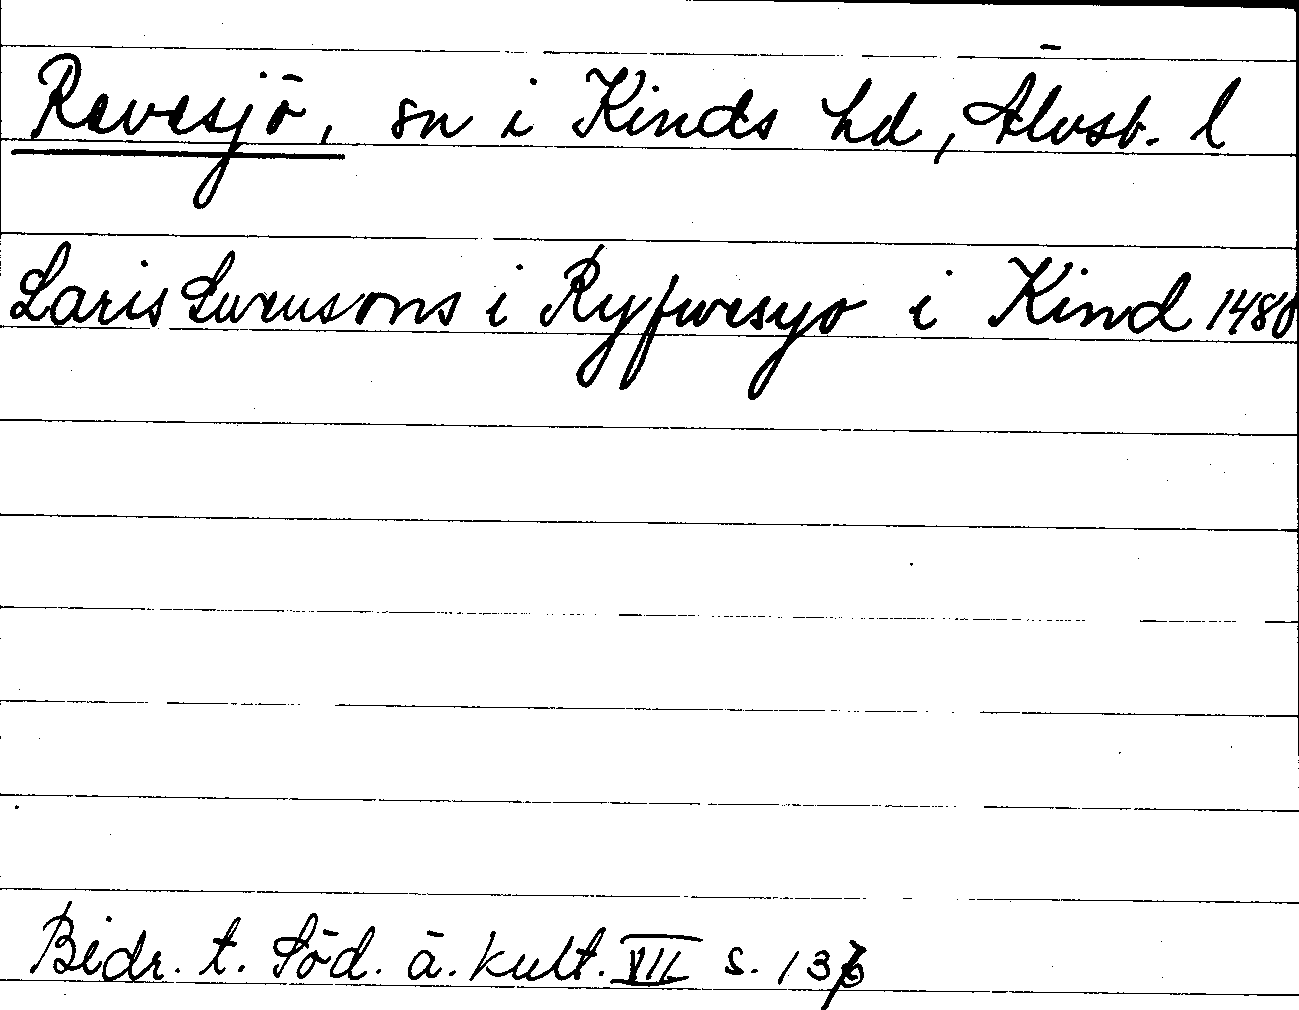 Revesjö, sn i Kinds hd, Älvsb. l
Laris Swensons i Ryfwesyo i Kind 1480
Bidr. t. Söd. ä. kult. VII s. 136